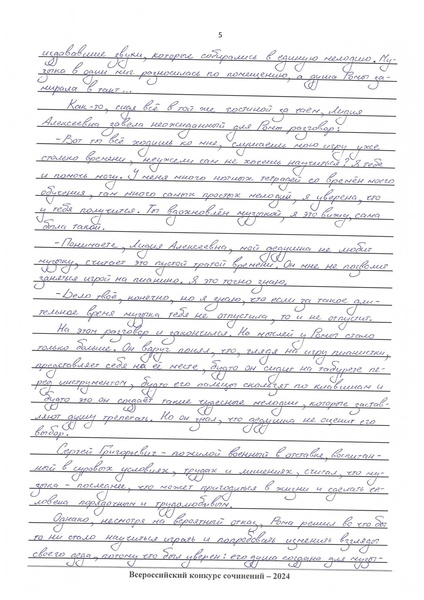 5
издававшие звуки, которые собирались в единую мелодию. Му-
зыка в один миг разносилась по помещению, а душа Ромы за-
мирала в такт...
Как-то, сидя всё в той же гостиной за чаем, Лидия
Алексеевна завела неожиданный для Ромы разговор:
- Вот ты всё ходишь ко мне, слушаешь мою игру уже
столько времени, неужели сам не хочешь научиться? Я тебе
и помочь могу. У меня много нотных тетрадей со времён моего
обучения, там много самых простых мелодий, я уверена, что
у тебя получится. Ты вдохновлён музыкой, я это вижу, сама
была такой.
- Понимаете, Лидия Алексеевна, мой дедушка не любит
музыку, считает это пустой тратой времени. Он мне не позволит
заняться игрой на пианино. Я это точно знаю.
- Дело твоё, конечно, но я знаю, что если за такое дли-
тельное время музыка тебя не отпустила, то и не отпустит.
На этом разговор и закончился. Но мыслей у Ромы стало
только больше. Он вдруг понял, что, глядя на игру пианистки,
представляет себя на её месте, будто он сидит на табурете пе-
ред инструментом, будто его пальцы скользят по клавишам и
будто это он создаёт такие чудесные мелодии, которые застав-
ляют душу трепетать. Но он знал, что дедушка не оценит его
выбор.
Сергей Григорьевич - пожилой военный в отставке, воспитан-
ный в суровых условиях, трудах и лишениях, считал, что му-
зыка - последнее, что может пригодиться в жизни и сделать че-
ловека порядочным и трудолюбивым.
Однако, несмотря на вероятный отказ, Рома решил во что бы
то ни стало научиться играть и попробовать изменить взгляды
своего деда, потому что был уверен: его душа создана для музы-
Всероссийский конкурс сочинений – 2024